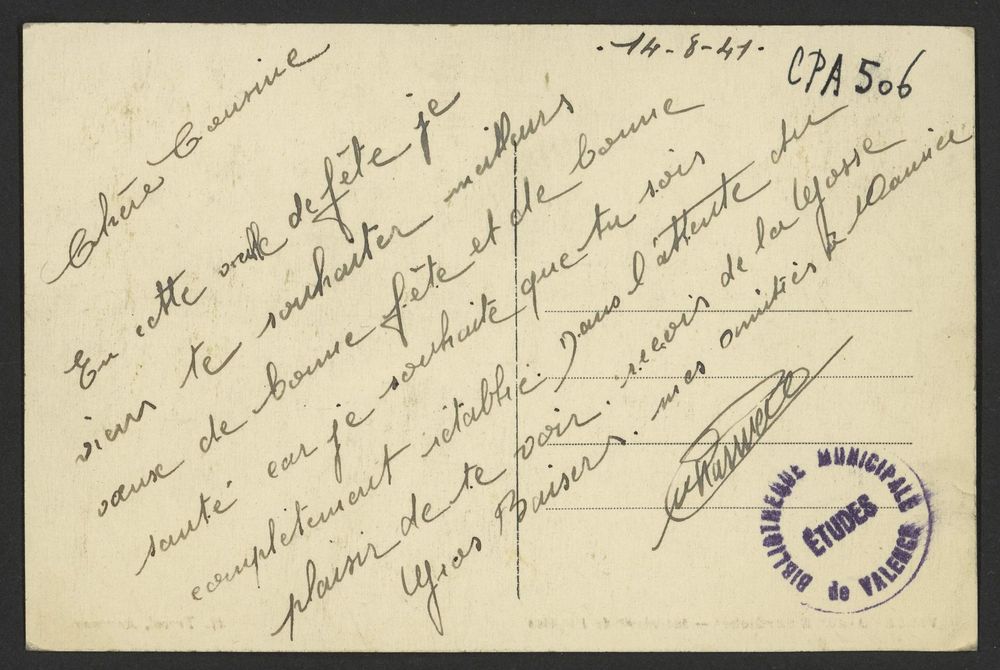 14-8-41.
CPA 506
Chère Cousine
En cette veille de fête je
viens te souhaiter meilleurs
vœux de bonne fête et de bonne
santé car je souhaite que tu sois
complètement rétablie. Dans l'attente du
plaisir de te voir. reçois de la Gosse
Gros Baisers. mes amitiés à Maurice
BIBLIOTHEQUE MUNICIPALE
ÉTUDES
de VALENCE